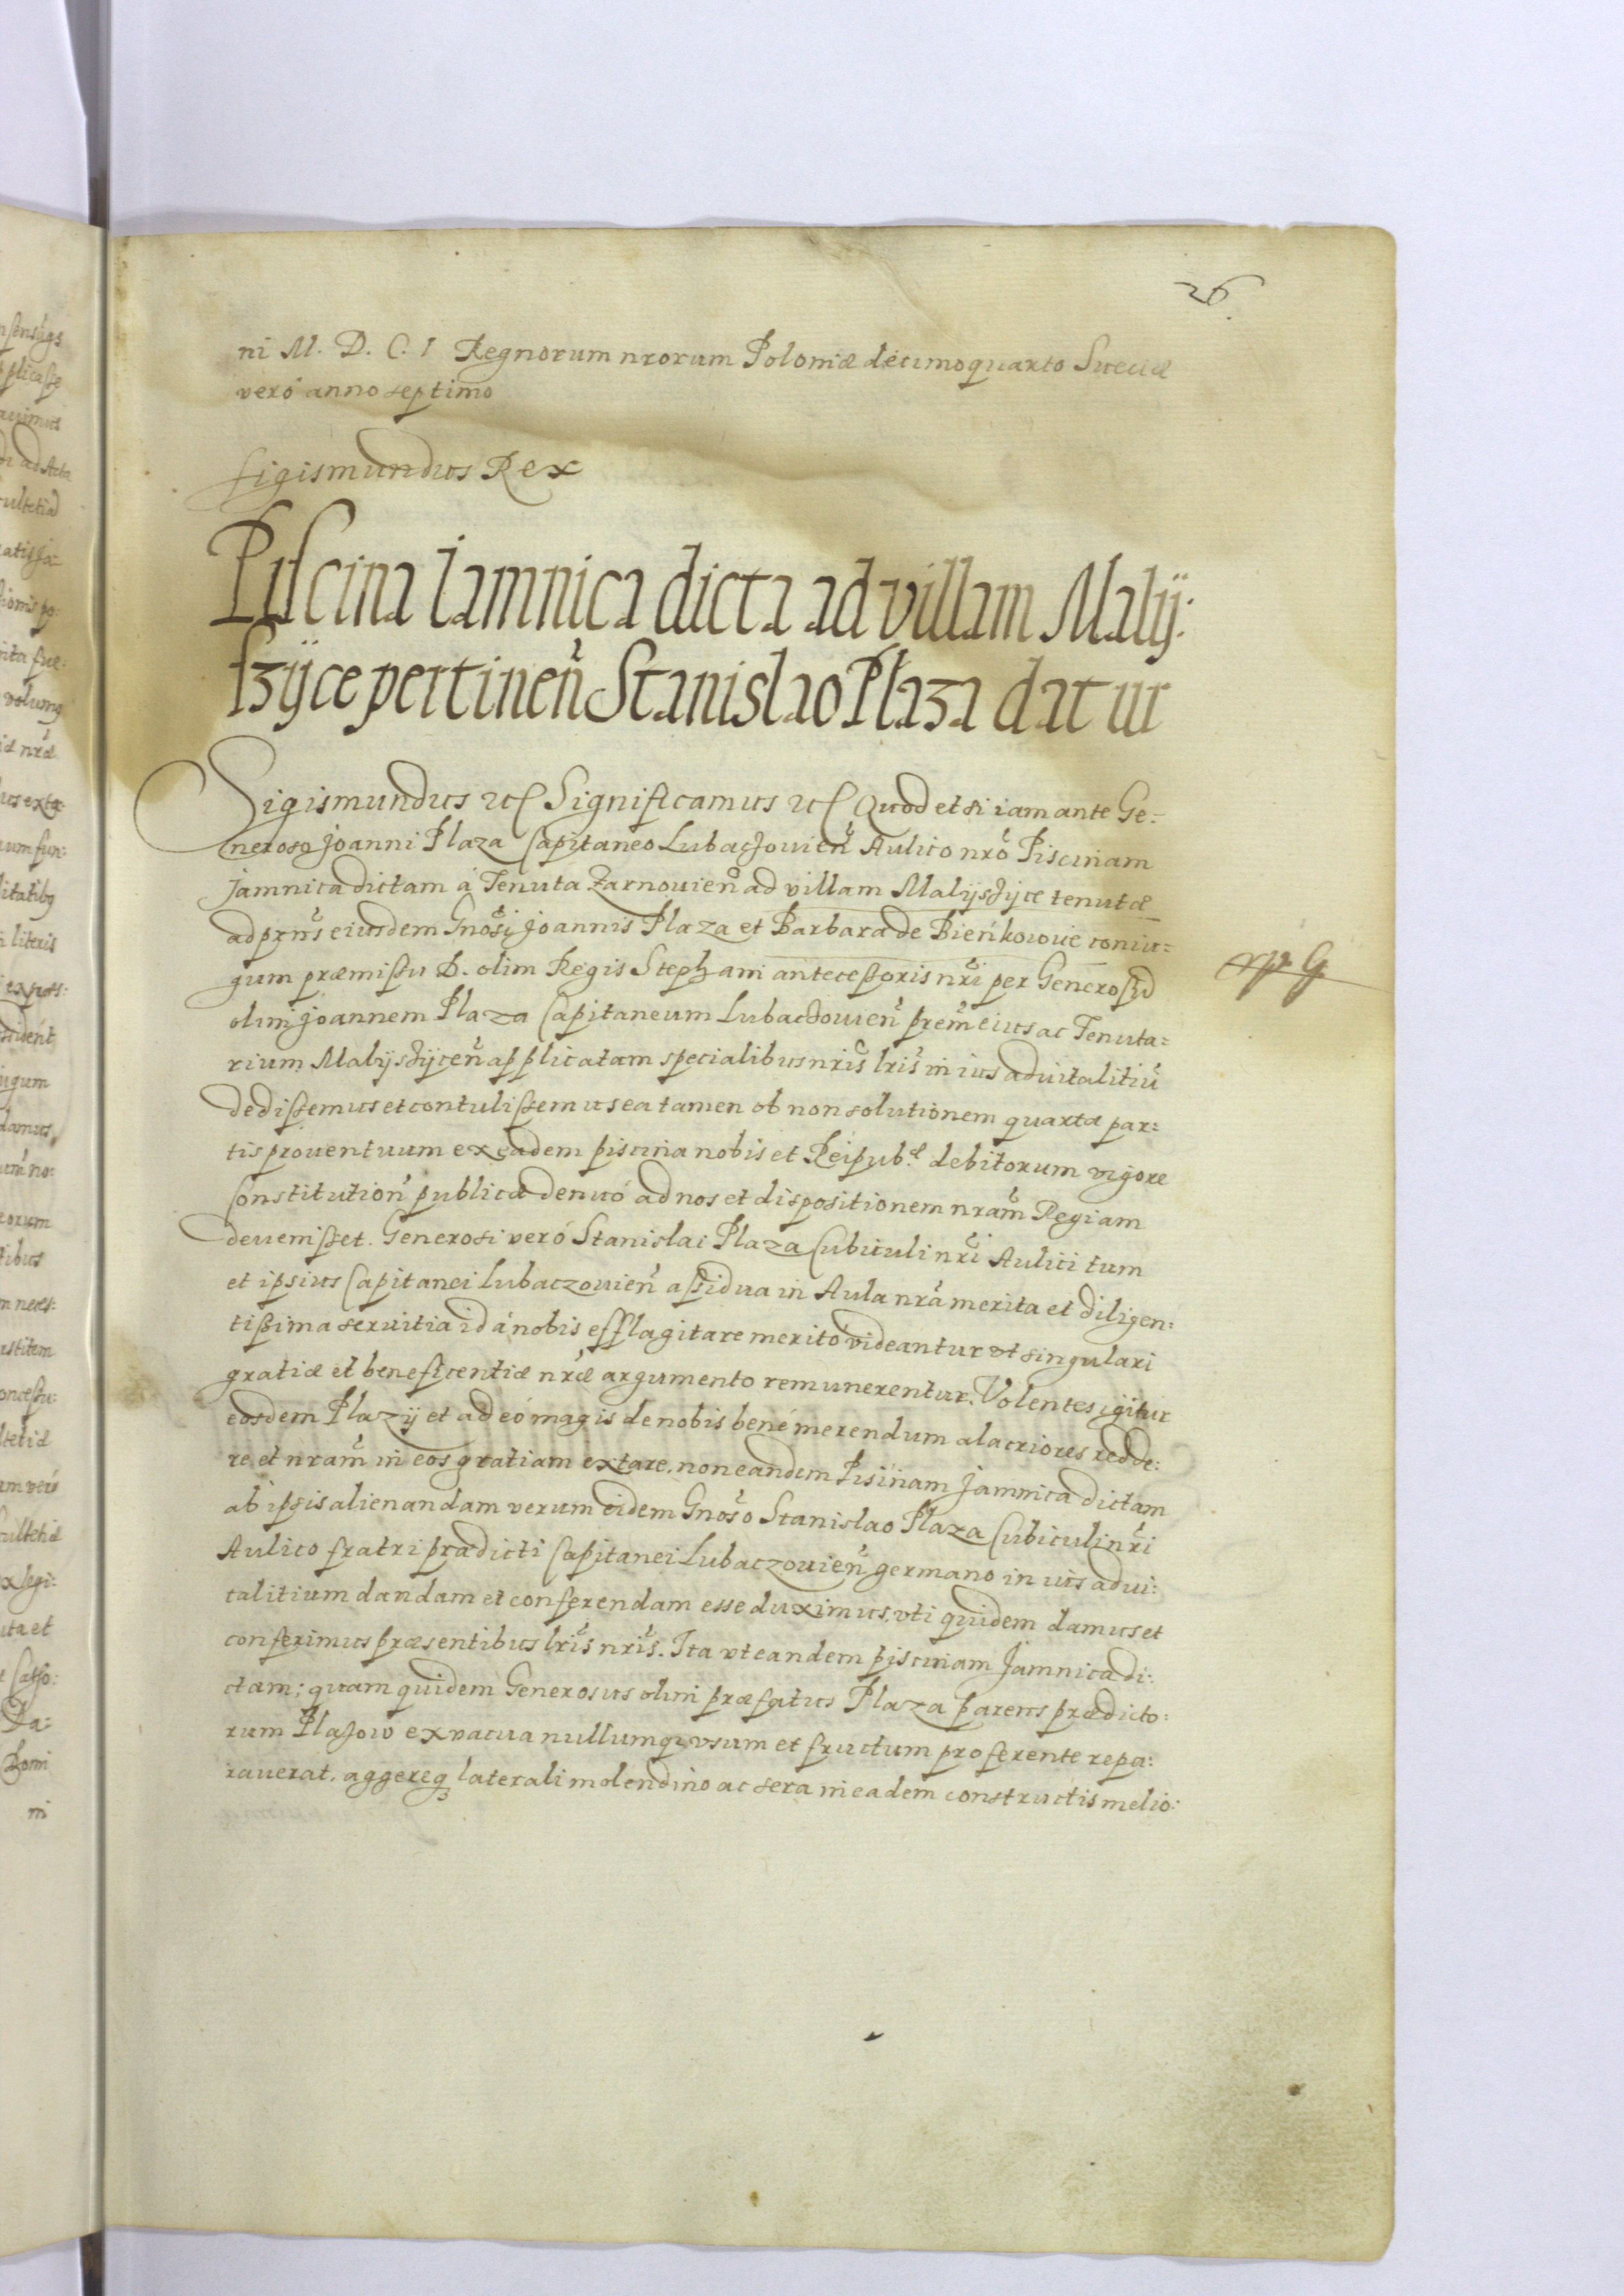 26.
ni M. D. C. I Regnorum nrorum Poloniæ decimoquarto Sueciæ
veró anno septimo
Sigismundus Rex
Piscina Jamnica dicta ad villam Malij:
szÿce pertineñ Stanislao Plaza datur
Sigismundus etc Significamus etc Quod etsi iam ante Ge=
neroso Joanni Plaza Capitaneo Lubaczouień Aulico nró Piscinam
Jamnica dictam á Tenuta Zarnouień ad villam Malijszÿce tenutæ
ad prńs eiusdem Gnosi Joannis Plaza et Barbara de Bieńkowie coniu=
gum præmissu D. olim Regis Stephani antecessoris nri per Generosū
olim Joannem Plaza Capitaneum Lubaczouień prem eius ac Tenuta=
rium Malijszÿceń applicatam specialibus nris lris in ius aduitalitiū
dedissemus et contulissemus ea tamen ob non solutionem quartæ par=
tis prouentuum ex eadem piscina nobis et Reipub.æ debitorum vigore
Constitution publicæ denuó ad nos et dispositionem nram Regiam
deuenisset. Generosi veró Stanislai Plaza Cubiculi nri Aulici tum
et ipsius Capitanei Lubaczouień assidua in Aula nrá merita et diligen=
tissima seruitia id á nobis efflagitare meritó videantur vt singulari
gratiæ et beneficentiæ nræ argumento remunerentur. Volentes igitur
eosdem Plazij et ad eó magis de nobis bené merendum alacriores redde:
re et nram in eos gratiam extare, non eandem Pisinam Jamnica dictam
ab ipsis alienandam verum eidem Gnoso Stanislao Plaza Cubiculi nri
Aulico fratri prædicti Capitanei Lubaczouień germano in ius adui:
talitium dandam et conferendam esse duximus, vti quidem damus et
conferimus præsentibus lris nris. Ita vt eandem piscinam Jamnica di:
ctam; quam quidem Generosus olim præfatus Plaza parens prædicto:
rum Plazow ex vacua nullumq vsum et fructum proferente repa:
rauerat, aggereq laterali molendino ac sera in eadem constructis melio: